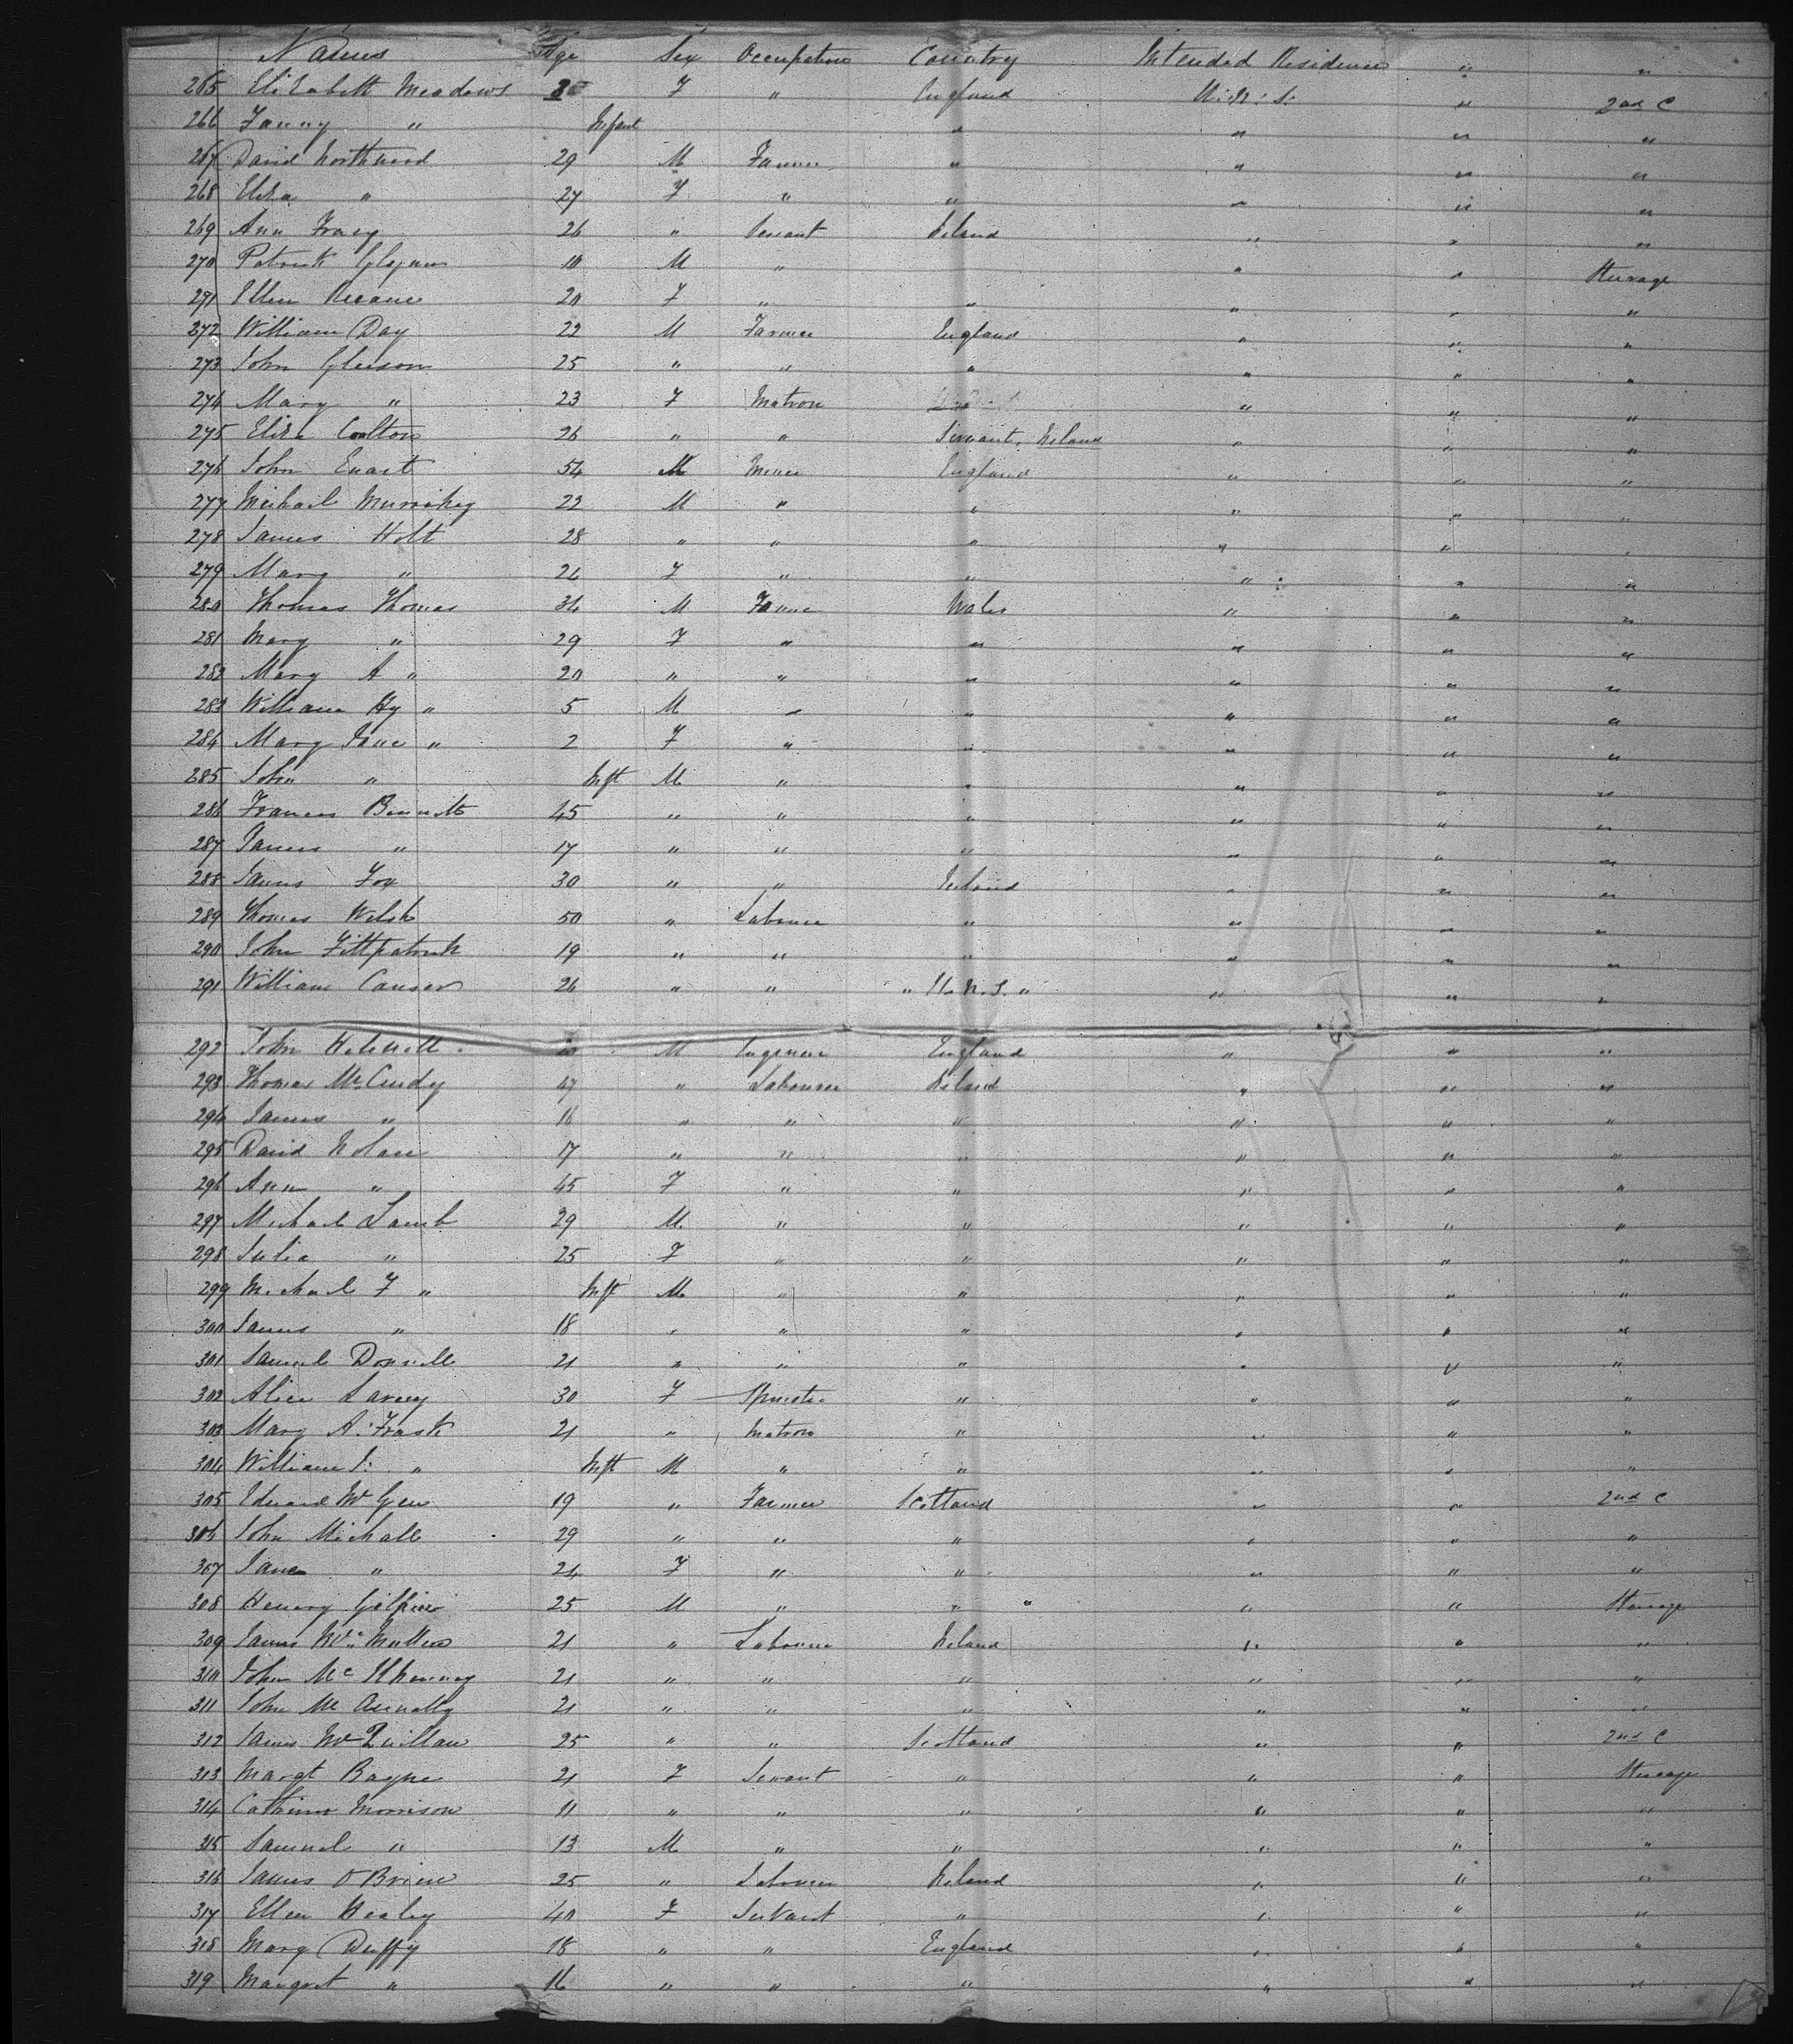 Names Age Sex Occupation Country Intended Residence " "
265 Elizabeth Meadows 30 F " England U. N. S. " 2nd C
266 Fanny " Infant " " " "
267 David Northwood 29 M Farmer " " " "
268 Eliza " 27 F " " " " "
269 Ann 26 " Servant Ireland " " "
270 Patrick 10 M " " " Steerage
291 Ellen 20 F " " " " "
272 William Day 22 M Farmer England " " "
273 John Gleeson 25 " " " " " "
274 Mary " 23 F Matron " " "
275 Eliza Coolton 26 " " Servant, Ireland " " "
276 John Evart 54 M Miner England " " "
277 Michael 22 M " " " " "
278 James Holt 28 " " " " " "
279 Mary " 24 F " " " " "
280 Thomas Thomas 34 M Farmer Wales " " "
281 Mary " 29 F " " " " "
282 Mary A " 20 " " " " " "
283 William Hy " 5 M " " " " "
284 Mary Jane " 2 F " " " " "
285 John " Inft M " " " " "
286 Frances Bennett 45 " " " " " "
287 James " 17 " " " " " "
288 James Fox 30 " " Ireland " " "
289 Thomas Welsh 50 " Labourer " " " "
290 John Fittpatrick 19 " " " " " "
291 William Causer 26 " " " U. N. S. " " " "
292 John M Engineer England " " "
293 Thomas McCurdy 47 " Labourer Ireland " " "
294 James " 16 " " " " " "
295 David Nolan 17 " " " " " "
296 Ann " 45 F " " " " "
297 Michael Lamb 29 M " " " " "
298 Julia " 25 F " " " " "
299 Michael F " Inft M " " " " "
300 James " 18 " " " " " "
301 Samuel Donnell 21 " " " " " "
302 Alice Larvey 30 F Spinster " " " "
303 Mary A. Trask 21 " Matron " " " "
304 William S. " Inft M " " " " "
305 Edward McGew 19 " Farmer Scotland " " 2nd C
306 John Michall 29 " " " " " "
307 Jane " 24 F " " " " "
308 Henery Gilkin 25 M " " " " " Steerage
309 James McMullen 21 " Labourer Ireland " " "
310 John Mc 21 " " " " " "
311 John Mc 21 " " " " " "
312 James McQuillan 25 " " Scotland " " 2nd C
313 Margt Bayne 21 F Servant " " " Steerage
314 Catherine Morrison 11 " " " " " "
315 Samuel " 13 M " " " " "
316 James O'Brien 25 " Labourer Ireland " " "
317 Ellen Healey 40 F Servant " " " "
318 Mary Duffy 18 " " England " " "
319 Margret " 16 " " " " " "